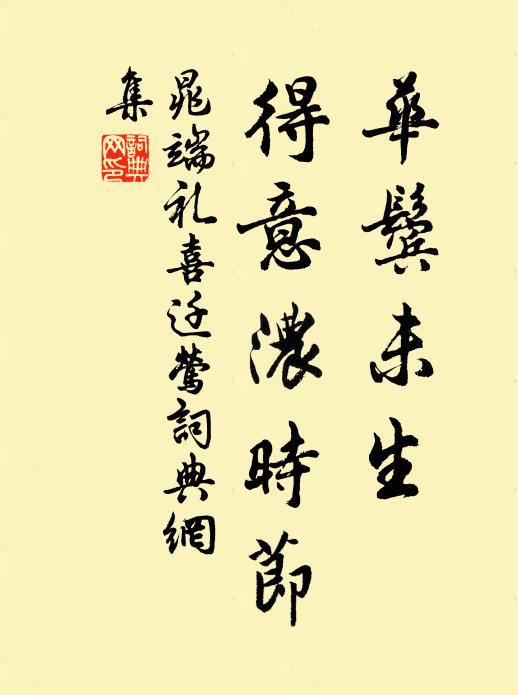 華鬢未生
得意濃時節
晁端礼喜迁鶯詞典網
集
詞典
网印